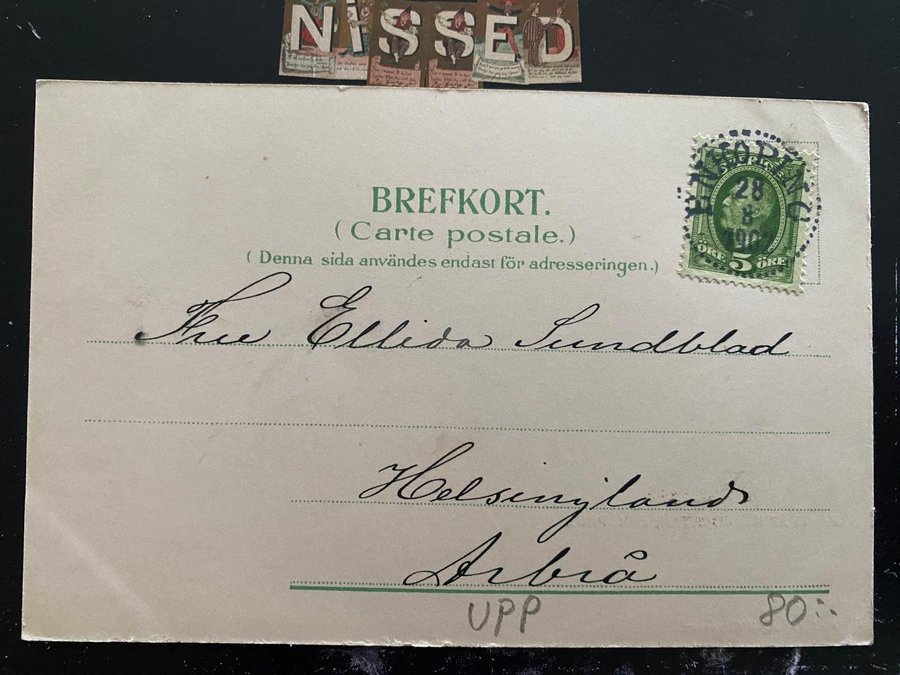 NISSED
BREFKORT.
(Carte postale.)
(Denna sida användes endast för adresseringen.)
ENKÖPING
28
8
190
SVERIGE
5
ÖRE ÖRE
Fru Ellida Sundblad
Helsingland
Arbrå
UPP 80:-